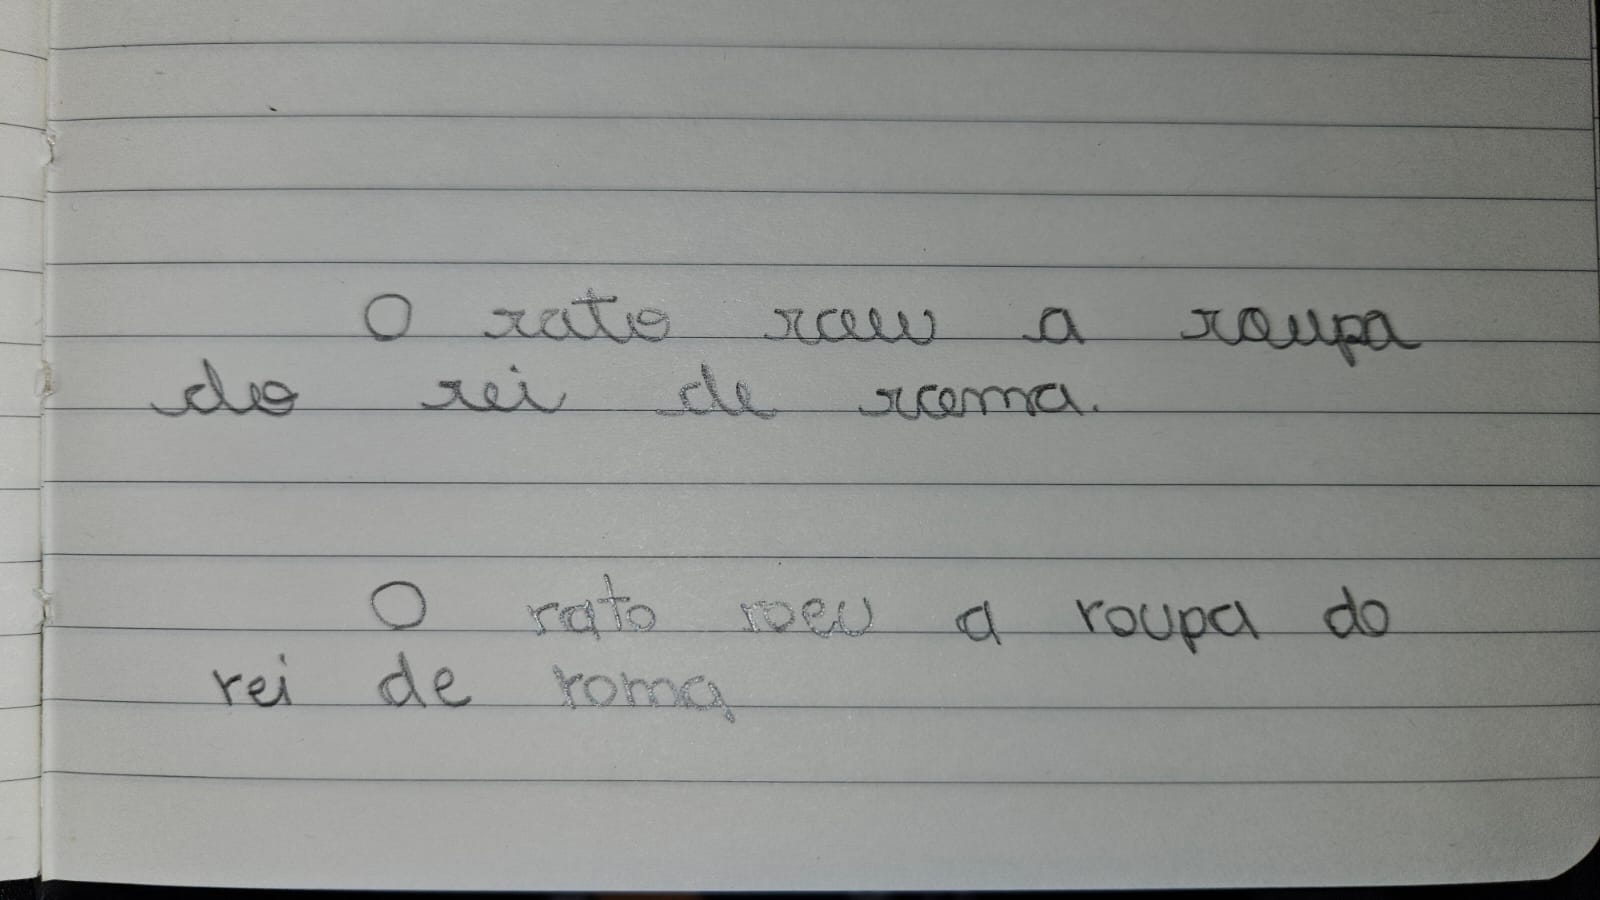 O rato roeu a roupa
do rei de roma.
O rato roeu a roupa do
rei de roma,